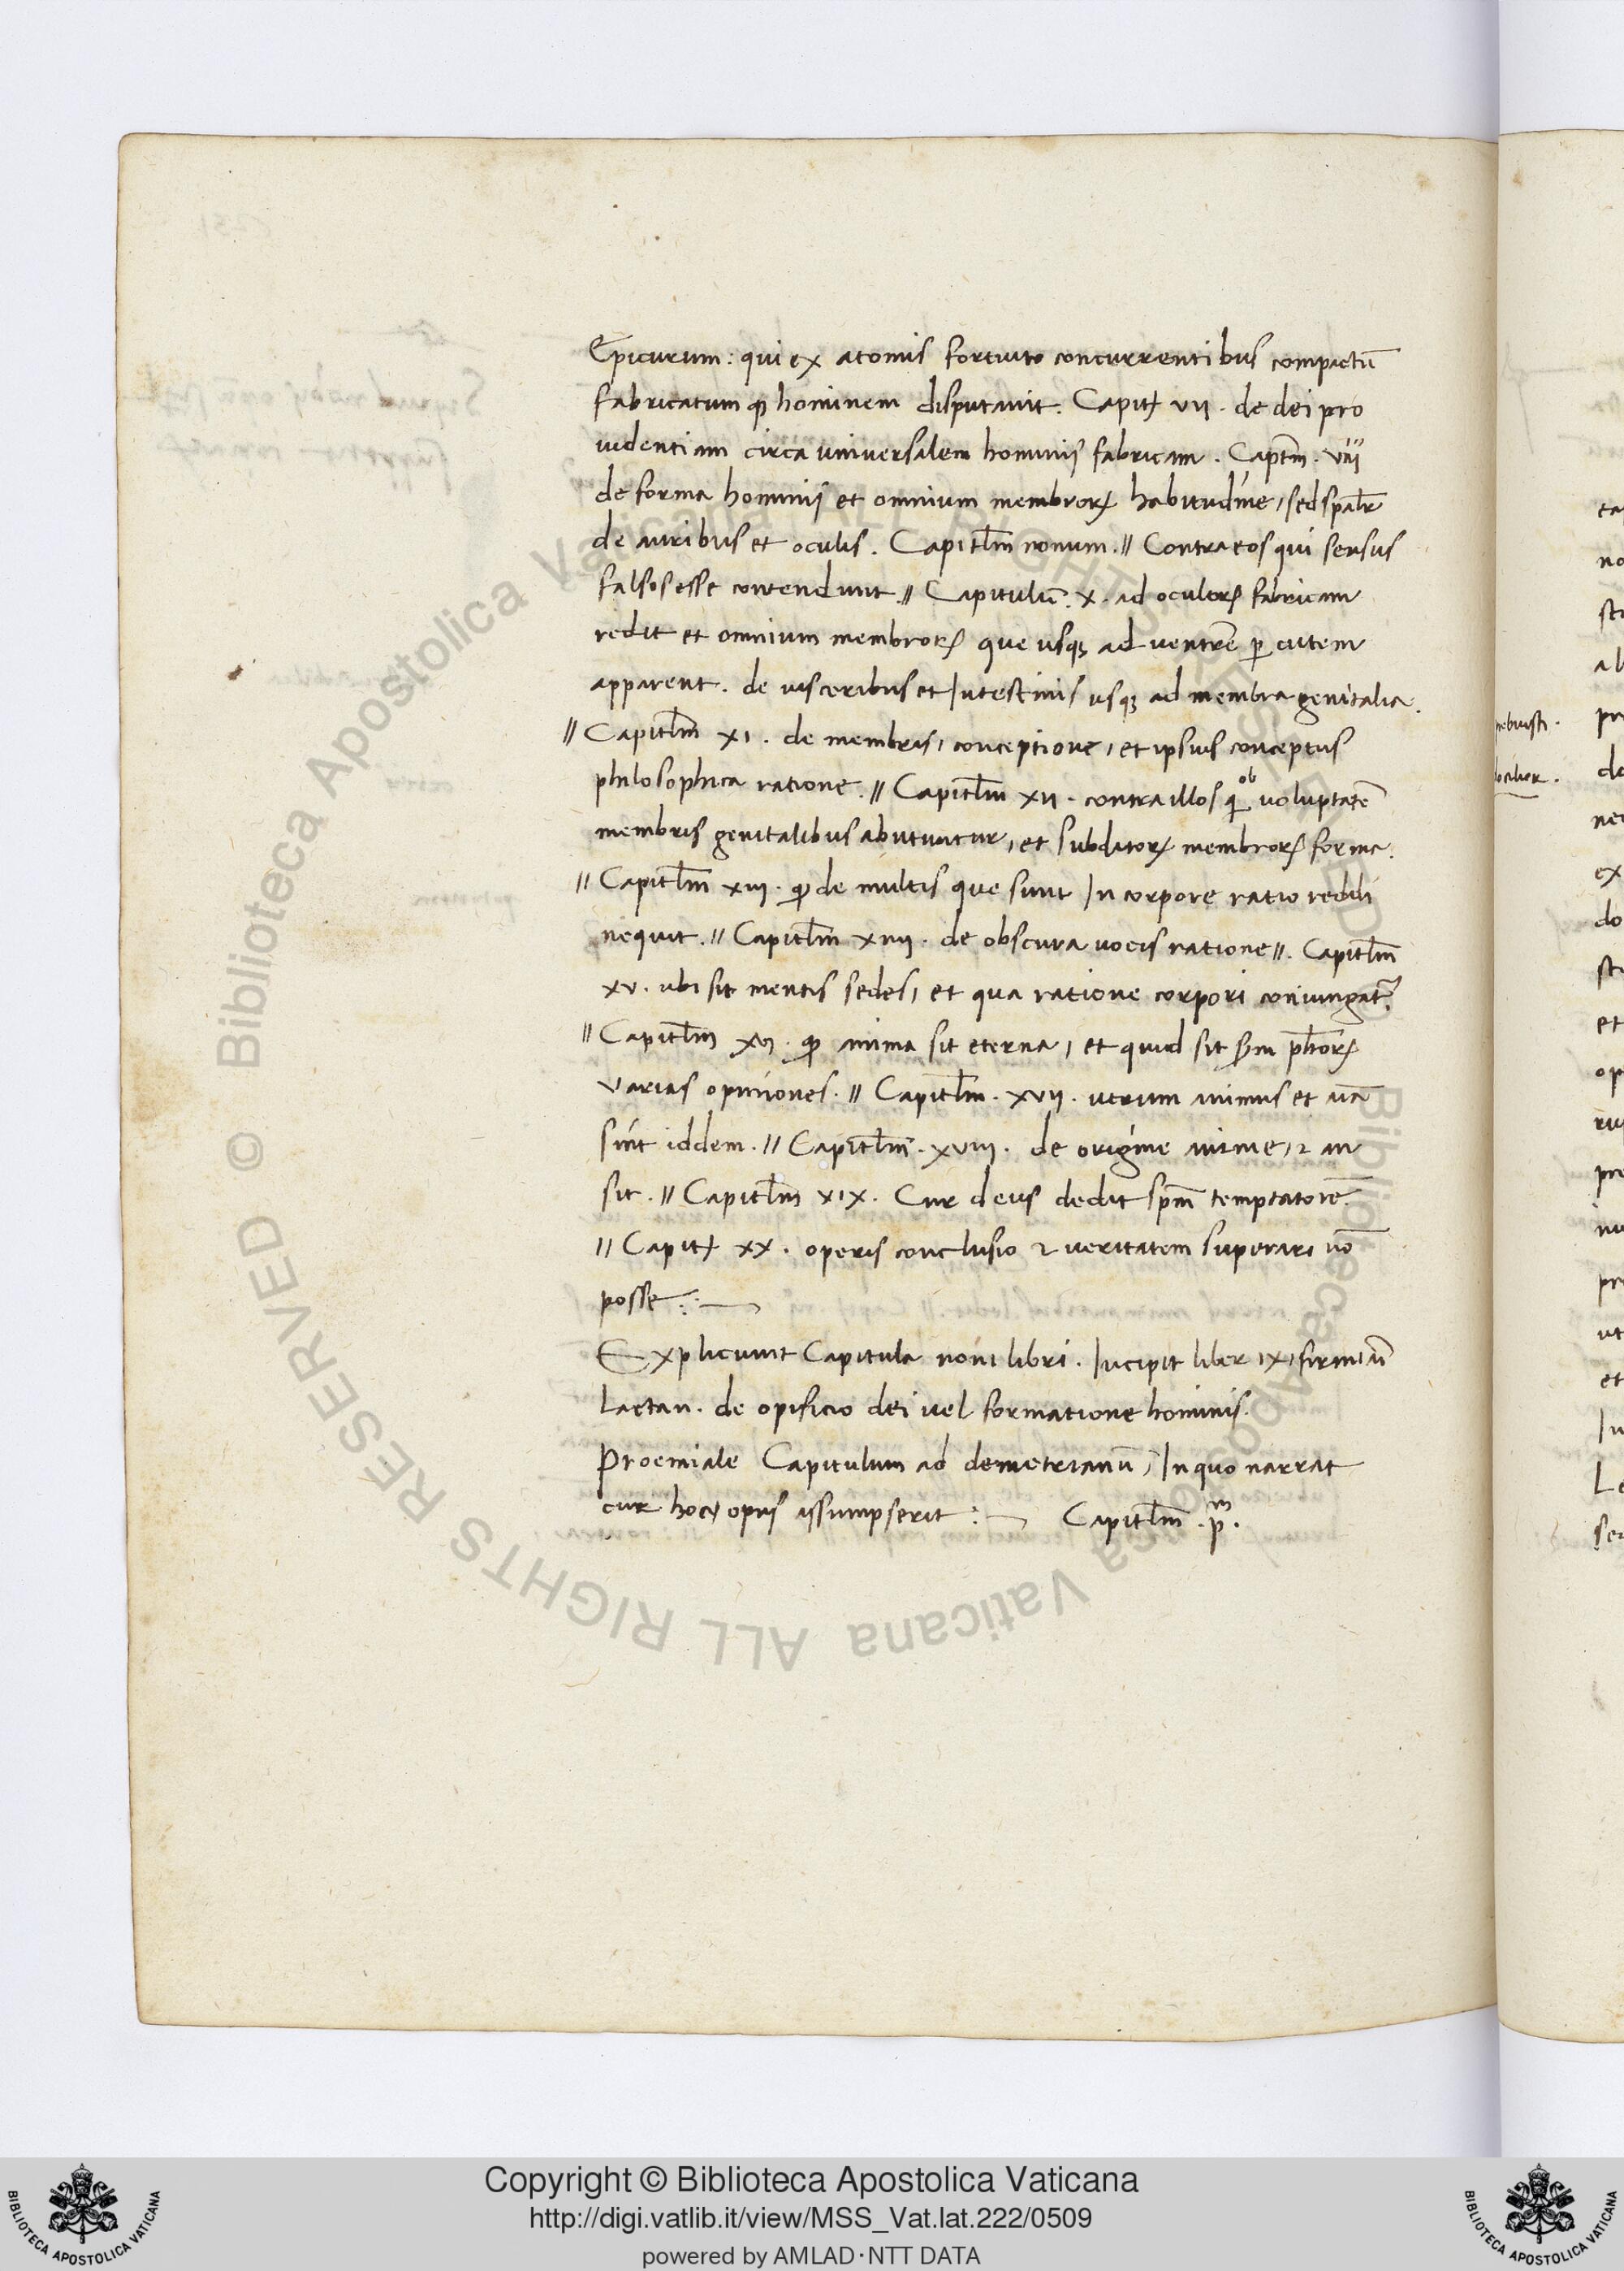 Epicurum: qui ex atomis fortuito concurrentibus compactū
fabricatum qꝫ hominem disputauit. Capitł vii. de dei pro
uidentiam circa universalem hominis fabricam. Captm̄. viii
de forma hominis et omnium membrorꝝ habitudine, sed spalr̄
de auribus et oculis. Capitl̄m nonum. // Contra eos qui sensus
falsos esse contendunt. // Capitulū. x. ad oculorꝝ fabricam
redit et omnium membrorꝝ que usqꝫ ad ventrē ꝑ cutem
apparent. de uisceribus et Intestinis usqꝫ ad membra genitalia.
// Capitl̄m xi. de membris, conceptione, et ipsius conceptus
philosophica ratione. // Capitl̄m xii. contra illos q̇ ob voluptatē
membris genitalibus abutuntur, et subditorꝝ membrorꝝ forma.
// Capitl̄m xiii. ꝙ de multis que sunt In corpore ratio reddi
nequit. // Capitl̄m xiiii. de obscura uocis ratione //. Capitl̄m
xv. ubi sit mentis sedes, et qua ratione corpori coniungat᷑.
// Capitl̄m xvi. ꝙ anima sit eterna, et quid sit sm̄ ph̄orꝝ
varias opiniones. // Capitl̄m. xvii. utrum animus et aīa
sint iddem. // Capitl̄m. xviii. de origine anime, ⁊ an
sit. // Capitl̄m xix. Cur deus dedit spm̄ temptatorē.
// Capitł xx. operis conclusio ⁊ veritatem superari nō
posse:
Expliciunt Capitula noni libri. Incipit liber ix, firmiāi
Lactan. de opificio dei uel formatione hominis.
Proemiale Capitulum ad demetrianū, In quo narrat
cur hoc opus assumpserit: Capitl̄m . pᵐ.
nebuisti.
Copyright © Biblioteca Apostolica Vaticana
http://digi.vatlib.it/view/MSS_Vat.lat.222/0509
powered by AMLAD·NTT DATA
BIBLIOTECA APOSTOLICA VATICANA
BIBLIOTECA APOSTOLICA VATICANA
© Biblioteca Apostolica Vaticana ALL RIGHTS RESERVED
Biblioteca Apostolica Vaticana ALL RIGHTS RESERVED